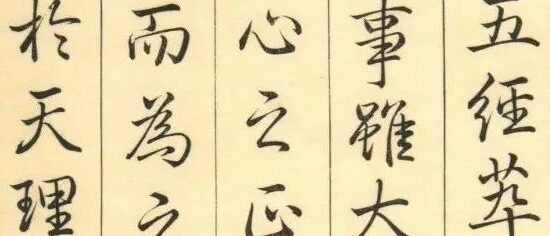 五經萃
事雖大
心之正
而為之
於天理